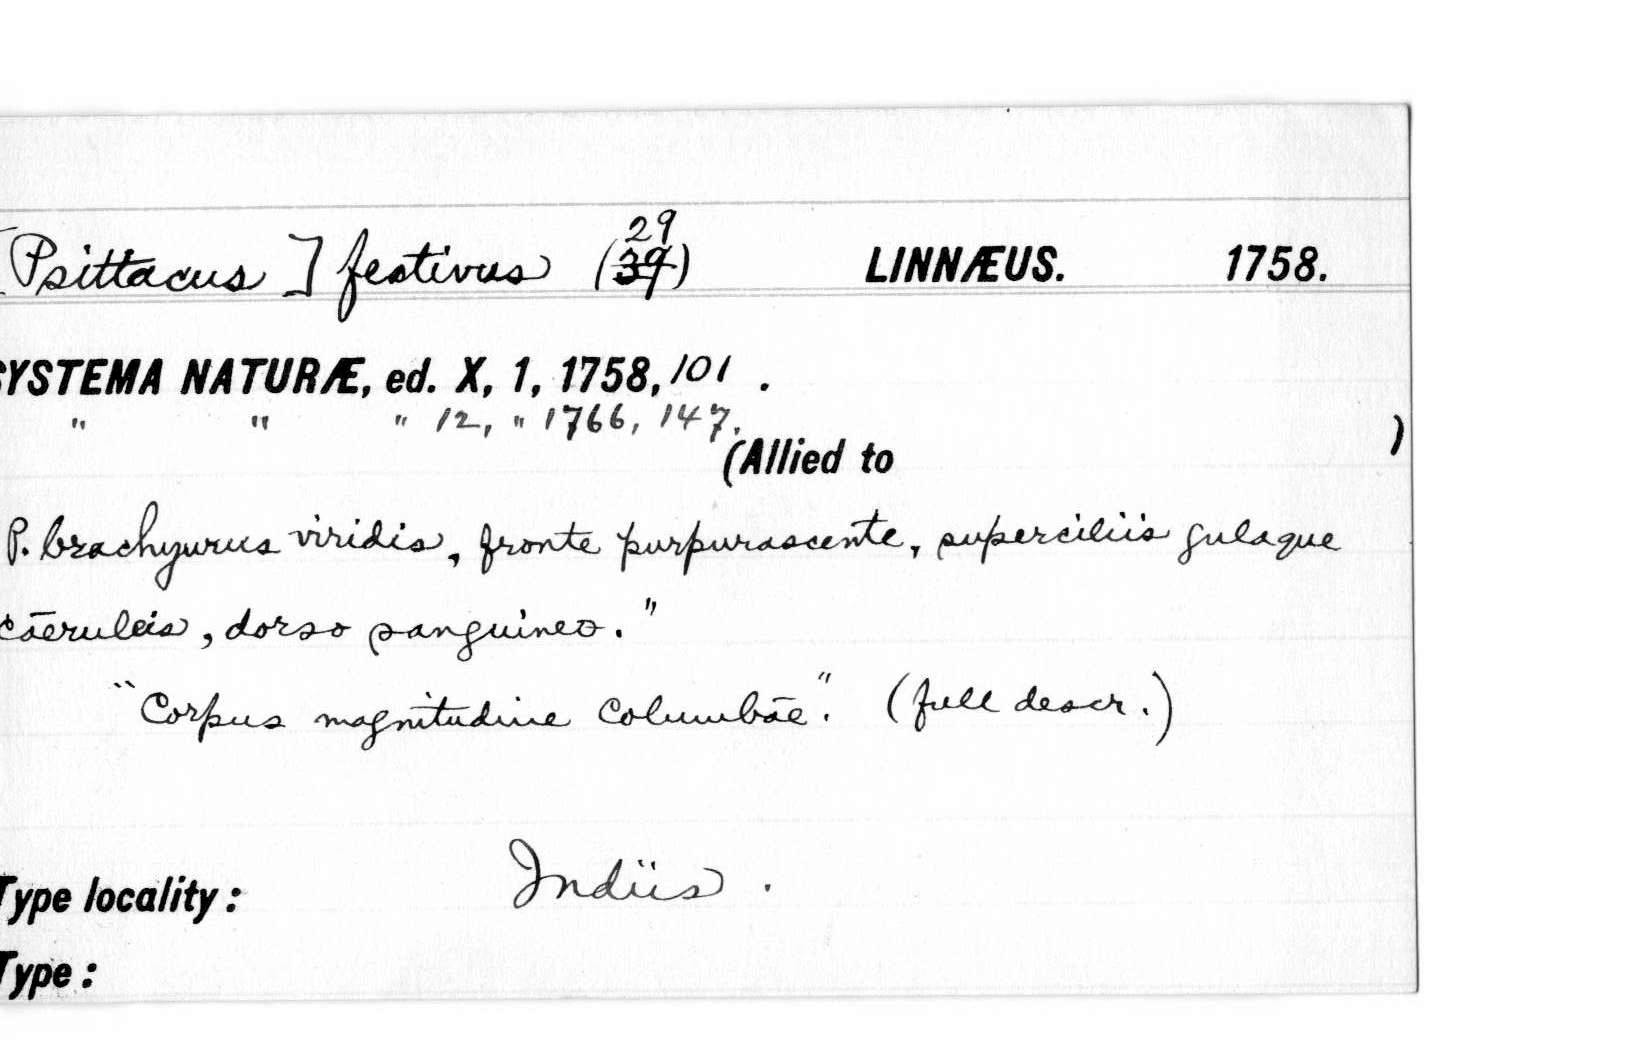 [Psittacus] festivus (29 39) LINNÆUS. 1758.
SYSTEMA NATURÆ, ed. X, 1, 1758, 101.
" " " 12, " 1766, 147.
(Allied to )
P. brachyurus viridis, fronte purpurascente, superciliis gulaque
cāeruleis, dorso sanguineo."
"Corpus magnitudine Columbāe". (full descr.)
Type locality: Indiis.
Type: